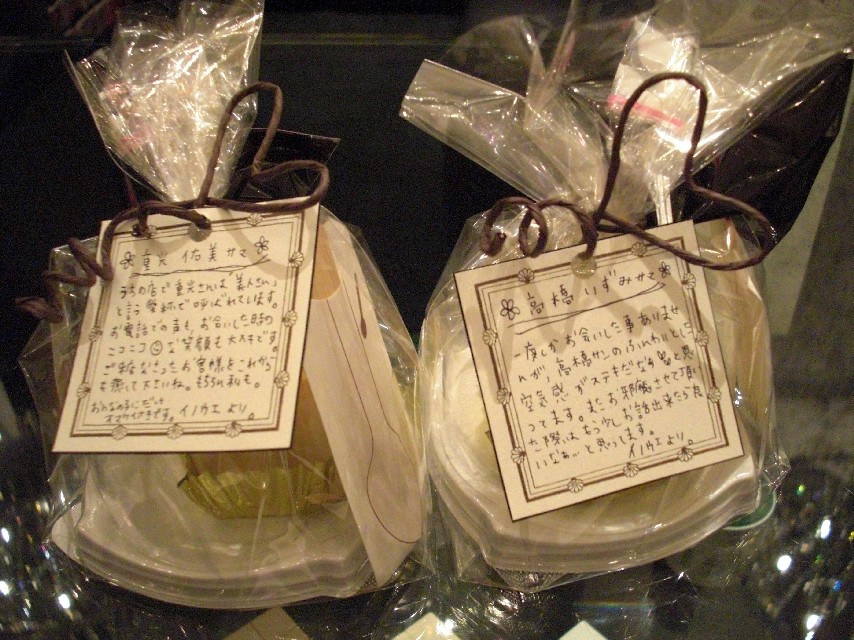 重光 佑美サマ
うちの店で重光さんは"美人さん"
と言う愛称で呼ばれています。
お電話での声も、お会いした時の
ニコニコな笑顔も大スキです。
ご結婚なさったお客様をこれから
も癒して下さいね。もちろん私も。
おんなの子にだけ
オマケ付きです。
イノウエより。
高橋いずみサマ
一度しかお会いした事ありませ
んが、高橋サンのふんわりとした
空気感がステキだなぁと思
ってます。またお邪魔させて頂い
た際はもう少しお話出来たら良
いなぁと思ってます。
イノウエより。